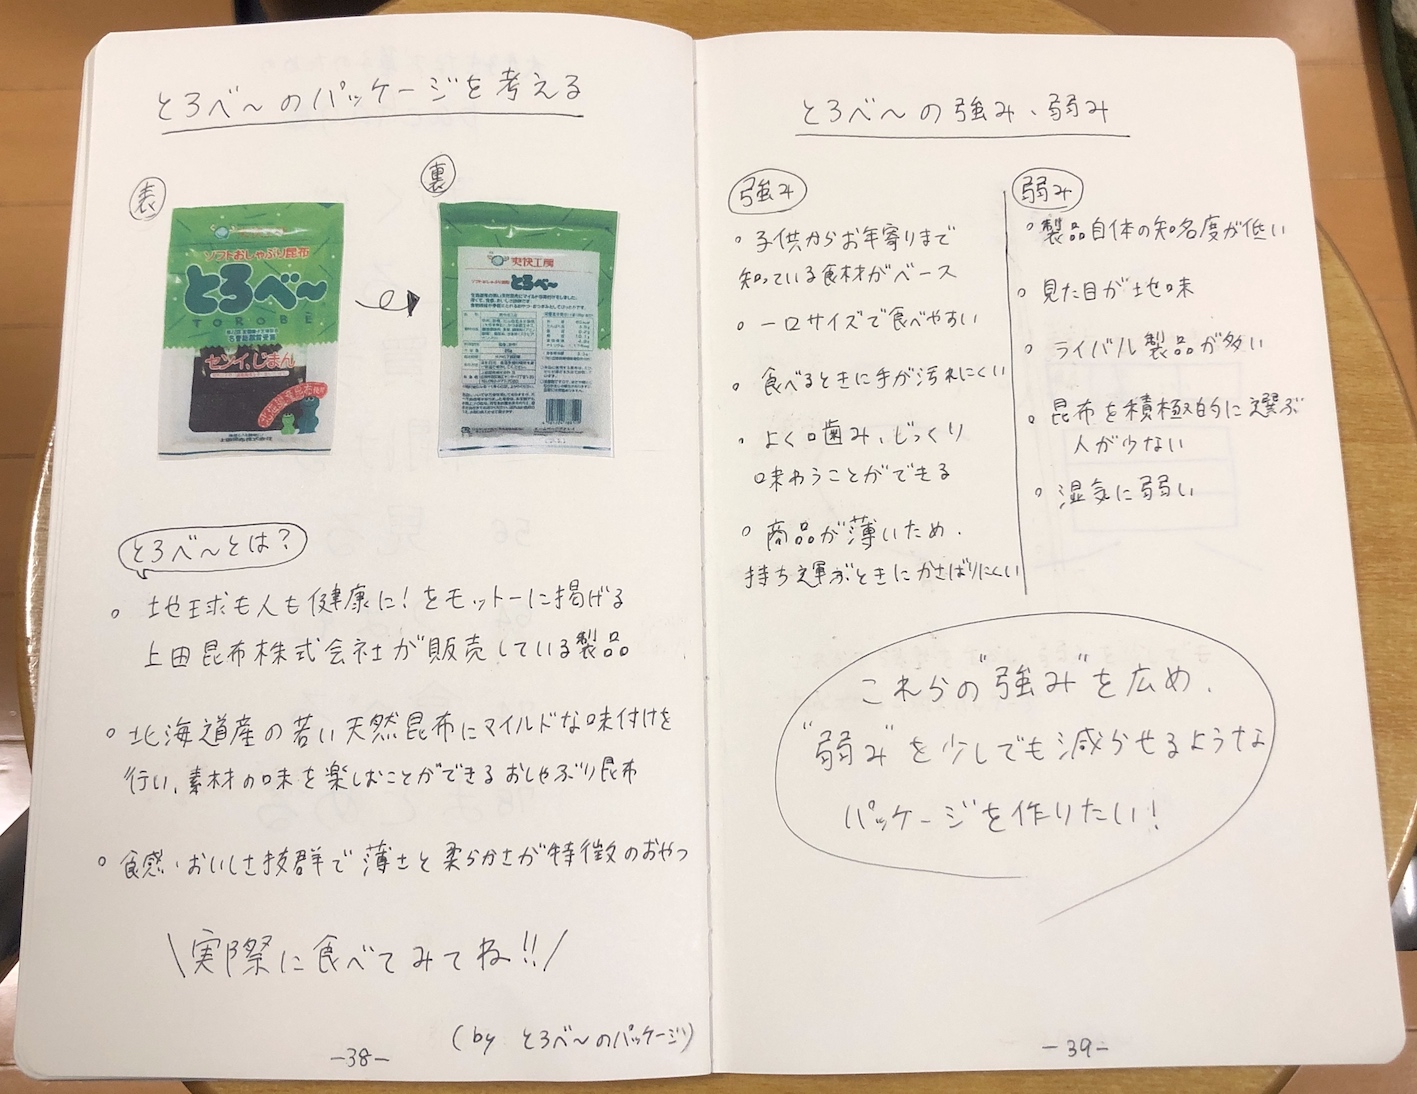 とろべ～のパッケージを考える
表
裏
ソフトおしゃぶり昆布
とろべ～
TOROBE
セツイじまん
爽快工房
とろべ～
とろべ～とは？
○ 地球も人も健康に！をモットーに掲げる
上田昆布株式会社が販売している製品
○ 北海道産の若い天然昆布にマイルドな味付けを
行い、素材の味を楽しむことができるおしゃぶり昆布
○ 食感・おいしさ抜群で薄さと柔らかさが特徴のおやつ
\実際に食べてみてね!!/
(by とろべ～のパッケージ)
-38-
とろべ～の強み、弱み
強み
○ 子供からお年寄りまで
知っている食材がベース
○ 一口サイズで食べやすい
○ 食べるときに手が汚れにくい
○ よく噛み、じっくり
味わうことができる
○ 商品が薄いため、
持ち運ぶときにかさばりにくい
弱み
○ 製品自体の知名度が低い
○ 見た目が地味
○ ライバル製品が多い
○ 昆布を積極的に選ぶ
人が少ない
○ 湿気に弱い
これらの"強み"を広め、
"弱み"を少しでも減らせるような
パッケージを作りたい！
-39-